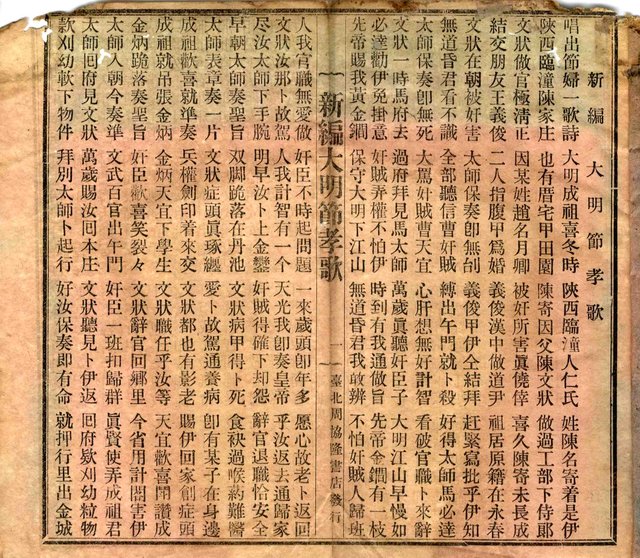 新編 大明節孝歌
唱出節婦一歌詩 大明成祖喜冬時 陝西臨潼人仁氏 姓陳名寄着是伊
陝西臨潼陳家庄 也有厝宅甲田園 陳寄因父陳文狀 做過工部下侍郎
文狀做官極清正 因某姓趙名月卿 被奸所害眞僥倖 喜久陳寄未長成
結交朋友王義俊 二人指腹甲爲婚 義俊漢中做道尹 祖居原籍在永春
文狀在朝被奸害 太師保奏卽無刣 義俊甲伊仝結拜 趕緊寫批乎伊知
無道昏君看不識 全部聽信曹奸賊 縛出午門就卜殺 好得太師馬必達
太師保奏卽無死 大罵奸賊曹天宜 心肝想無好計智 看破官職卜來辭
文狀一時馬府去 過府拜見馬太師 萬歲眞聽奸臣子 大明江山早慢如
必達勸伊免掛意 奸賊弄權不怕伊 時到有我通做旨 先帝金鐧有一枝
先帝賜我黃金鐧 保守大明下江山 無道昏君我敢辦 不怕奸賊人歸班
新編大明節孝歌 一 臺北周協隆書店發行
人我官職無愛做 奸臣不時起問題 一來歲頭卽年多 愿心故老卜返回
文狀汝那卜故駕 人我計智有一个 天光我卽奏皇帝 乎汝返去通歸家
尽汝太師下手腕 明早汝卜上金鑾 奸賊得確下却怨 辭官退職恰安全
早朝太師卽奏旨 双脚跪落在丹池 文狀病甲得卜死 食袂過喉約難醫
太師表章奏一片 文狀症頭眞琢纏 愛卜故駕通養病 卽有某子在身邊
成祖歡喜就準奏 兵權劍印着來交 文狀都也有彭老 賜伊回家創症頭
成祖就吊張金炳 金炳天宜下學生 文狀職任乎汝等 天宜歡喜閣讚成
金炳跪落奏聖旨 奸臣歡喜笑裂々 文狀辭官回鄉里 今省用計閣害伊
太師入朝今奏準 文武百官出午門 奸臣一班扣歸群 眞賢使弄成祖君
太師囘府見文狀 萬歲賜汝囘本庄 文狀聽見卜伊返 囘府欵刈幼粒物
款刈幼軟下物件 拜別太師卜起行 好汝保奏卽有命 就押行里出金城